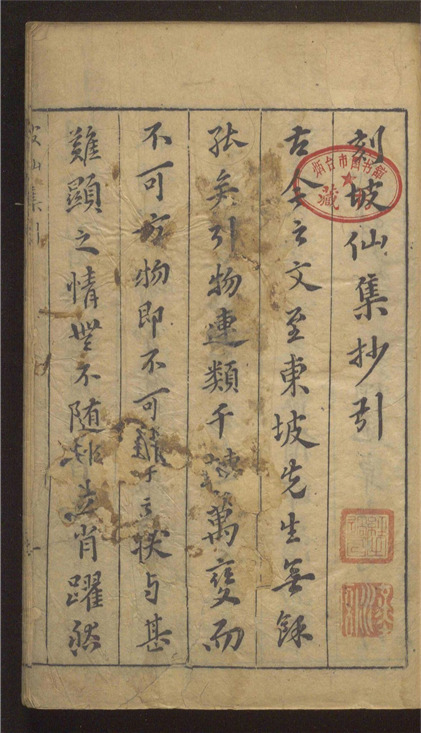 刻坡仙集抄引
古今之文至東坡先生無餘
矣引物連類千萬變而
不可方物即不可之狀与甚
難顯之情無不随形立肖躍然
坡仙集引
烟台市图书馆
藏